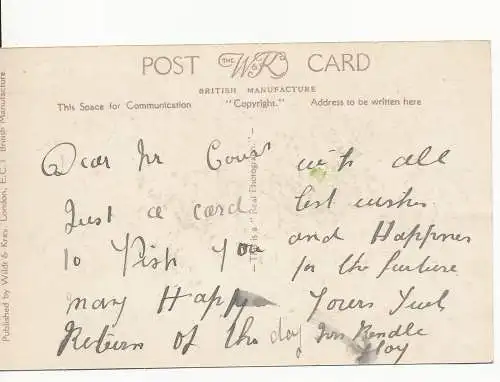 POST THE W&K CARD
BRITISH MANUFACTURE
This Space for Communication "Copyright." Address to be written here
Dear Mr
Just a card
To Wish You
many Happy
Return of the day
with all
best wishes
and Happines
for the future
Yours
Published by Wildt & Kray, London, E.C.1 British Manufacture
This is a Real Photograph